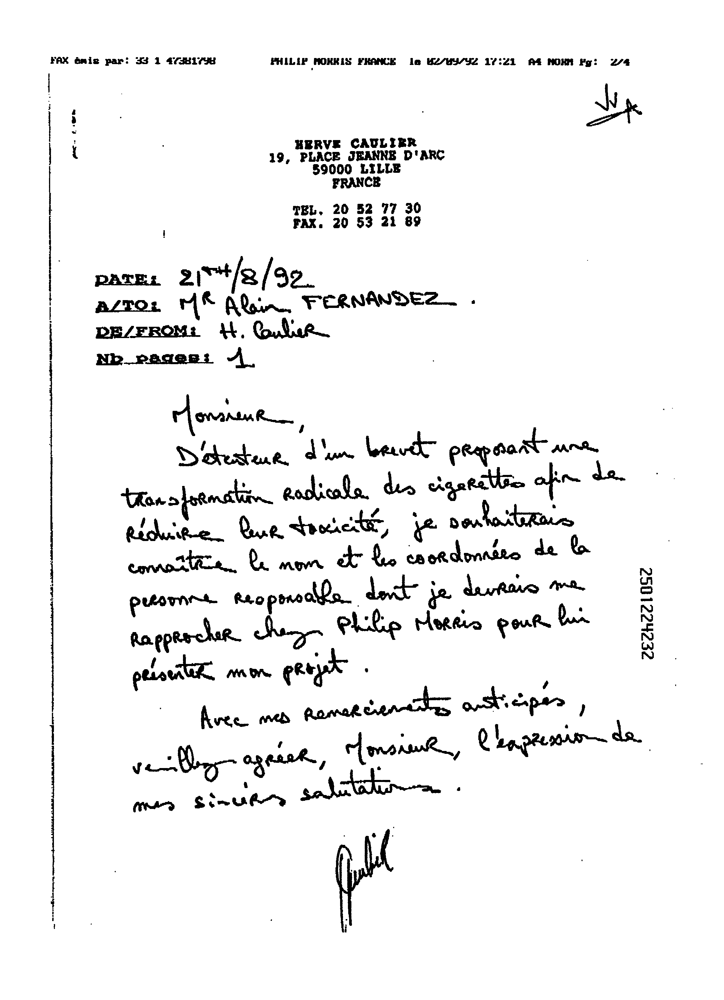 FAX émis par: 33 1 47381798 PHILIP MORRIS FRANCE le 02/09/92 17:21 A4 NORM Pg: 2/4
HERVE CAULIER
19, PLACE JEANNE D'ARC
59000 LILLE
FRANCE
TEL. 20 52 77 30
FAX. 20 53 21 89
DATE: 21TH/8/92
A/TO: MR Alain FERNANDEZ.
DE/FROM: H. Caulier
Nb pages: 1
Monsieur,
Détenteur d'un brevet proposant une
transformation radicale des cigarettes afin de
réduire leur toxicité, je souhaiterais
connaître le nom et les coordonnées de la
personne responsable dont je devrais me
rapprocher chez Philip Morris pour lui
présenter mon projet.
Avec mes remerciements anticipés,
veuillez agréer, Monsieur, l'expression de
mes sincères salutations.
2501224232